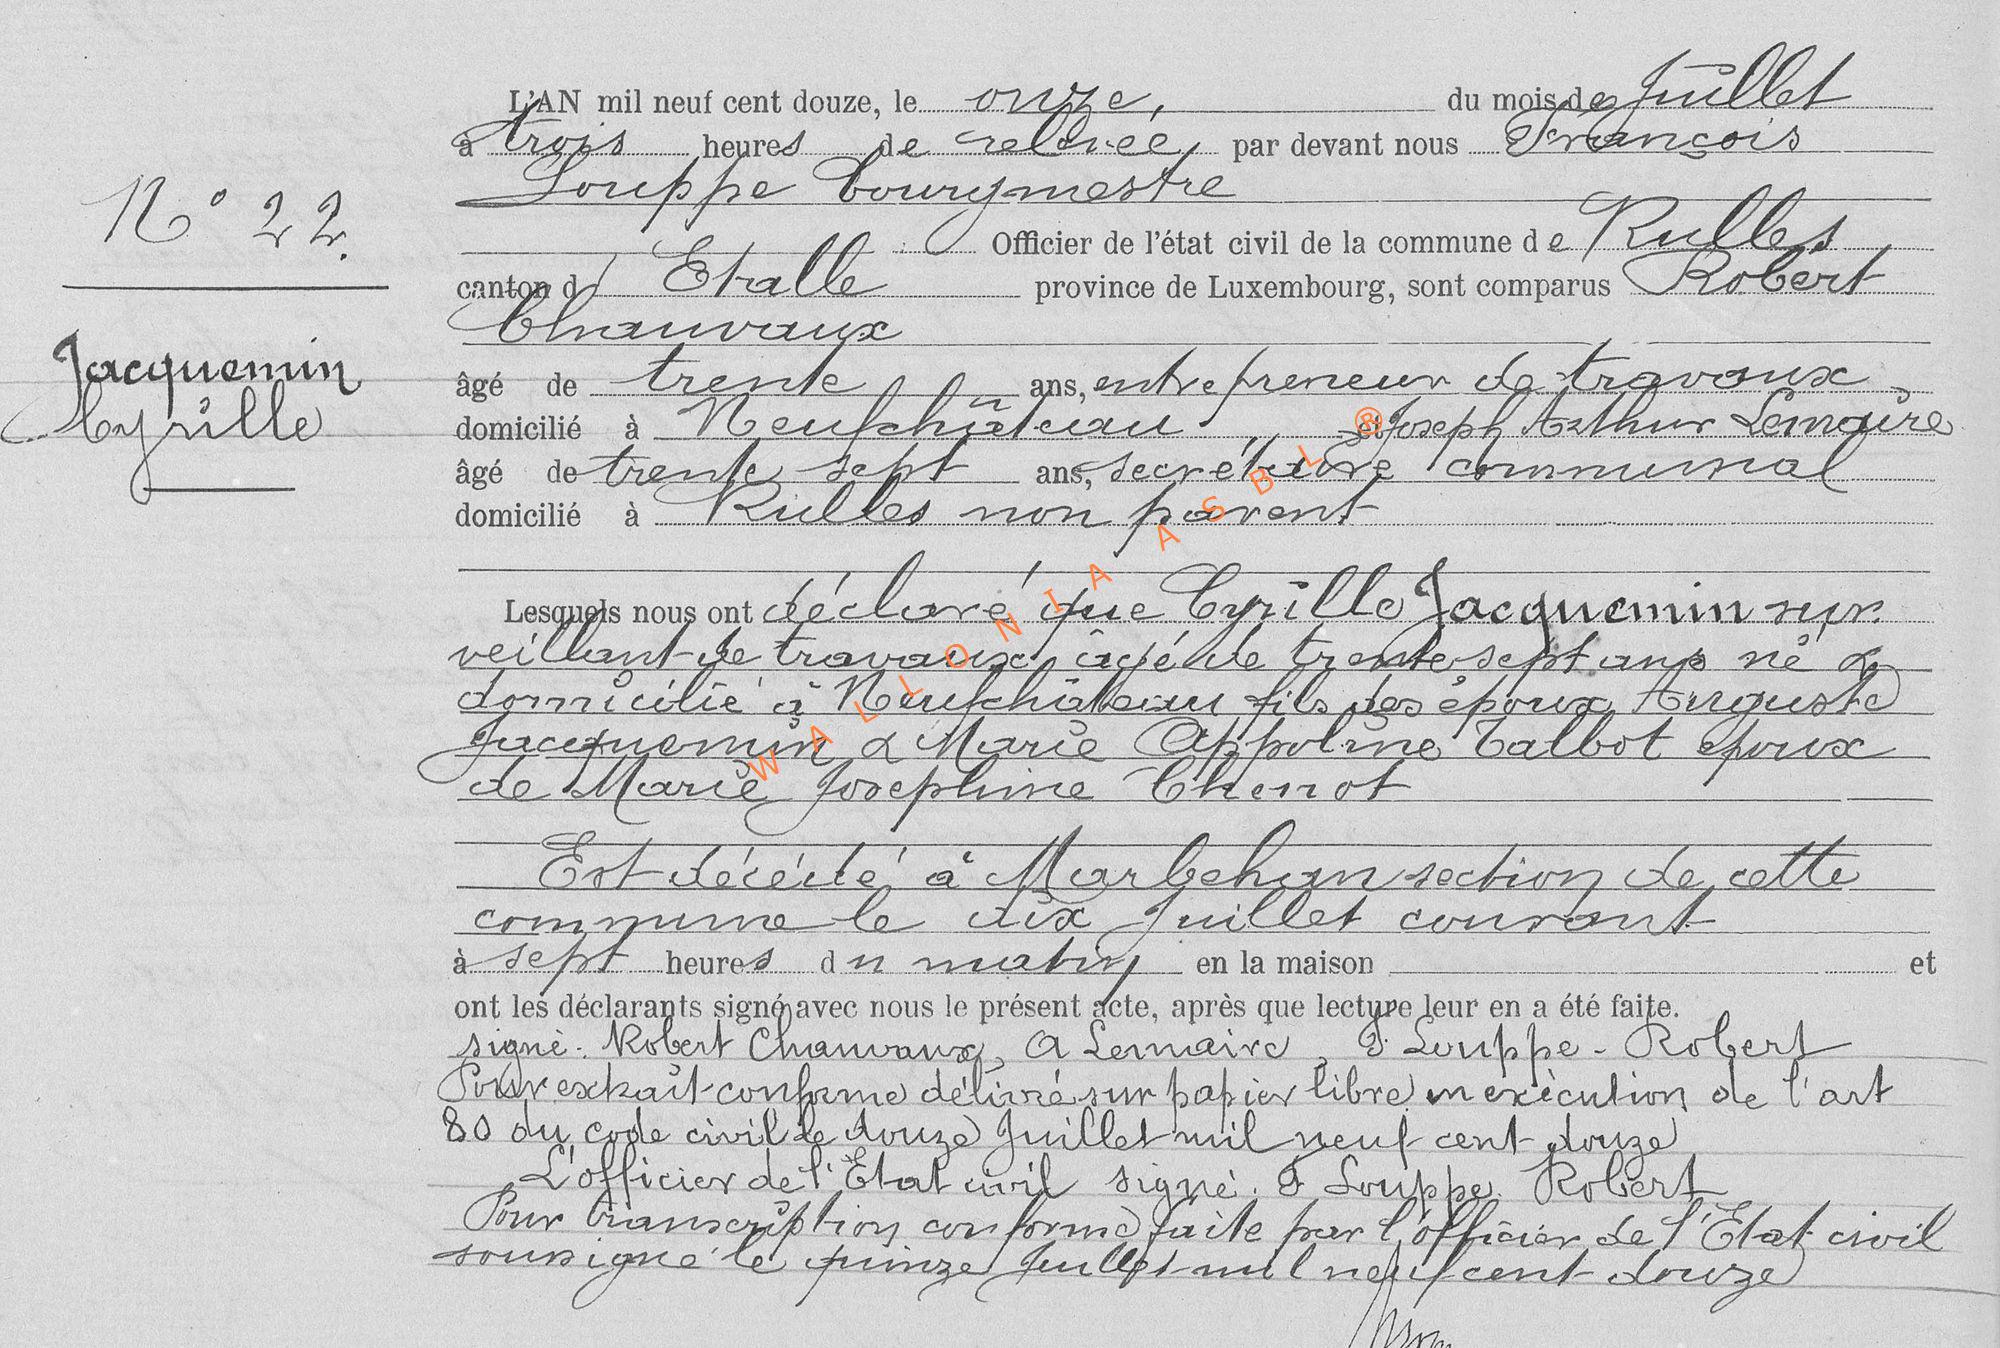 N° 22.
Jacquemin
Cyrille
L'AN mil neuf cent douze, le onze, du mois de Juillet
à trois heures de relevée, par devant nous François
Louppe bourgmestre
Officier de l'état civil de la commune de Rulles
canton d' Etalle province de Luxembourg, sont comparus Robert
Chauvaux
âgé de trente ans, entrepreneur de travaux
domicilié à Neufchâteau et Joseph Arthur Lemaire
âgé de trente sept ans, secrétaire communal
domicilié à Rulles non parent
Lesquels nous ont déclaré que Cyrille Jacquemin sur
veillant de travaux âgé de trente sept ans né &
domicilié à Neufchâteau fils des époux Auguste
Jacquemin & Marie Appoline Talbot epoux
de Marie Josephine Chenot
Est décédé à Marbehan section de cette
commune le dix Juillet courant
à sept heures du matin en la maison et
ont les déclarants signé avec nous le présent acte, après que lecture leur en a été faite.
signé. Robert Chauvaux, A Lemaire, F Louppe - Robert
Pour extrait conforme délivré sur papier libre en exécution de l'art
80 du code civil le douze Juillet mil neuf cent douze
L'officier de l'Etat civil signé. F Louppe Robert
Pour transcription conforme faite par l'officier de l'Etat civil
soussigné le quinze Juillet mil neuf cent douze
WALLONIA ASBL ®